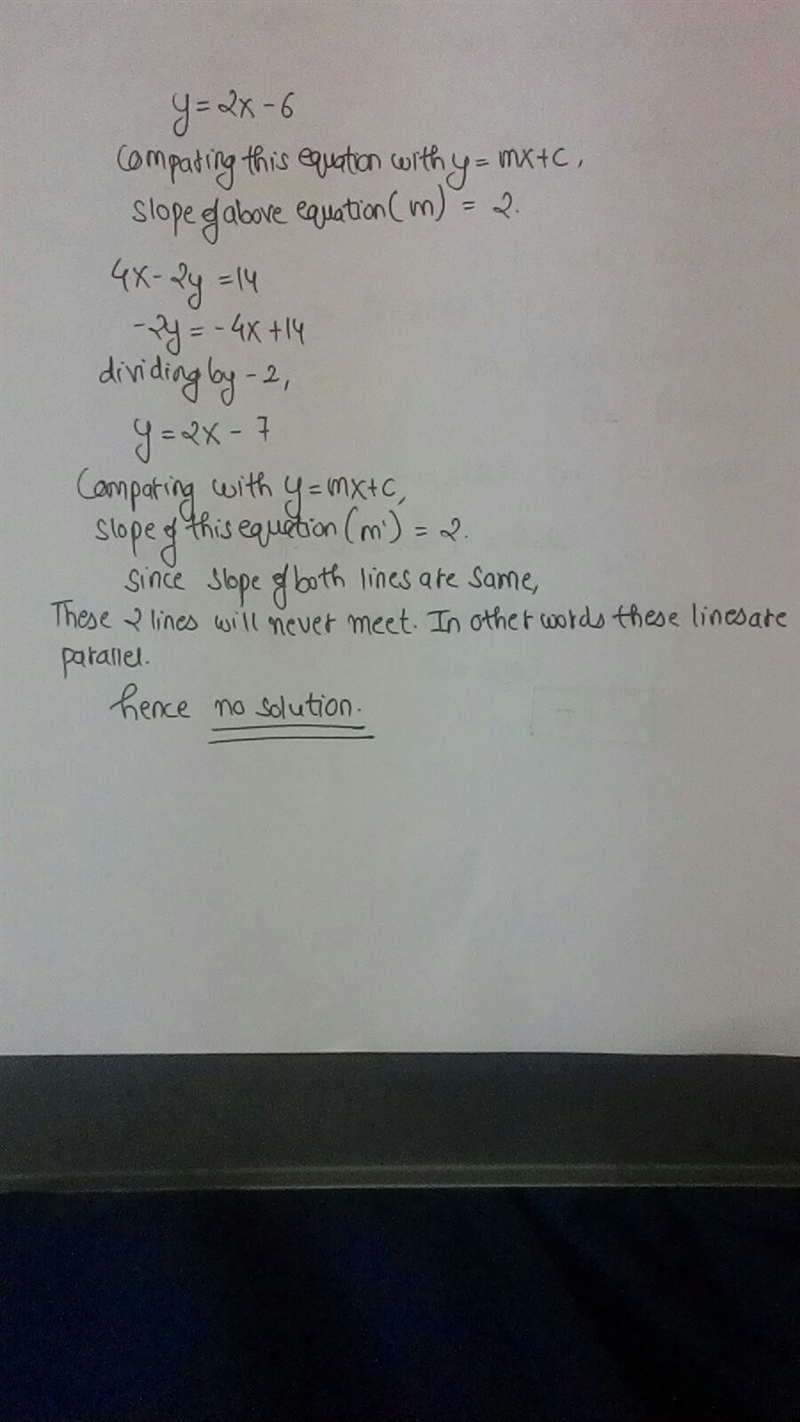 y = 2x - 6
Comparing this equation with y = mx + c,
Slope of above equation (m) = 2.
4x - 2y = 14
-2y = -4x + 14
dividing by -2,
y = 2x - 7
Comparing with y = mx + c,
slope of this equation (m') = 2.
since slope of both lines are same,
These 2 lines will never meet. In other words these lines are
parallel.
hence no solution.